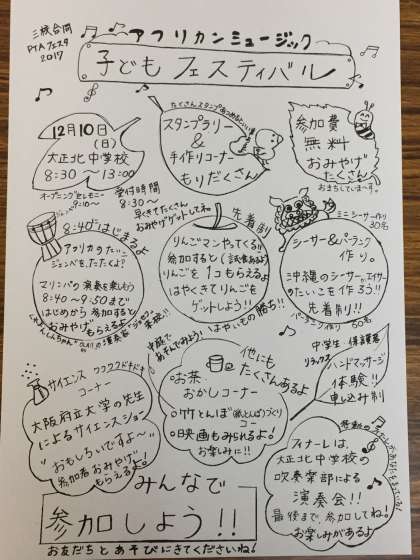 三校合同
PTAフェスタ
2017
アフリカンミュージック
子どもフェスティバル
12月10日
(日)
大正北中学校
8:30〜13:00
オープニングセレモニー
受付時間
8:30〜
早くきてたくさん
おみやげゲットしてネ。
たくさんスタンプあつめるといい
スタンプラリー
&
手作りコーナー
もりだくさん!
参加費
無料
おみやげ
たくさん!
おまちしていまーす。
8:40〜はじまるよ
ジェンベ
アフリカのたいこ
ジェンベをたたくよ?
マリンバの演奏を楽しもう
8:40〜9:50まで
はじめから参加すると
おみやげもらえるよ
先着制
りんごマンやってくる!!
参加すると(試食あるよ)
りんごを1コもらえるよ
はやくきてりんごを
ゲットしよう!!
はやいもの勝ち!!
ミニシーサー作り
30名
シーサー&パーランク
作り。
沖縄のシーサーとエイサー
のたいこを作ろう!!
先着制!!
パーランク作り 50名
サイエンス
コーナー
ワクワクドキドキ
大阪府立大学の先生
によるサイエンスショー
おもしろいですよ〜
参加者おみやげ
もらえるよ!
他にも
たくさんあるよ
・お茶
おかしコーナー
・竹とんぼ(紙とんぼ)づくり
コーナー
・映画もみられるよ!
お楽しみに!!
中学生・保護者
リラックス
ハンドマッサージ
体験!!
申し込み制
フィナーレは、
大正北中学校の
吹奏楽部による
演奏会!!
最後まで、参加してね!
お楽しみがあるよ
みんなで
参加しよう!!
お友だちとあそびにきてくださいね!